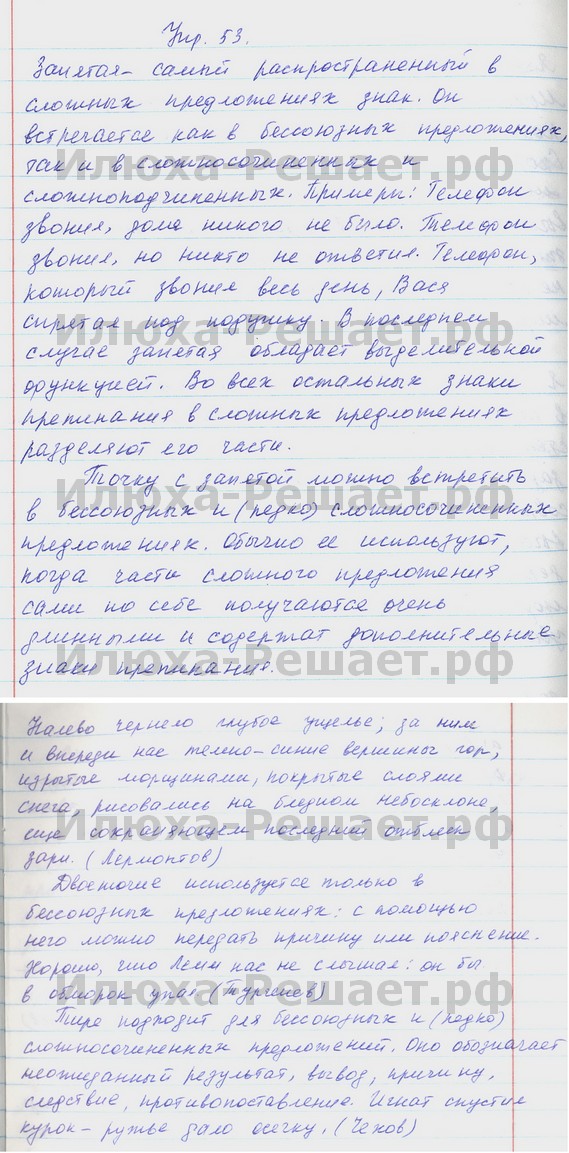 Упр. 53.
Запятая – самый распространенный в
сложных предложениях знак. Он
встречается как в бессоюзных предложениях,
так и в сложносочиненных и
Илюха-Решает.рф
сложноподчиненных. Примеры: Телефон
звонил, дома никого не было. Телефон
звонил, но никто не ответил. Телефон,
который звонил весь день, Вася
спрятал под подушку. В последнем
Илюха-Решает.рф
случае запятая обладает выделительной
функцией. Во всех остальных знаки
препинания в сложных предложениях
разделяют его части.
Точку с запятой можно встретить
Илюха-Решает.рф
в бессоюзных и (редко) сложносочиненных
предложениях. Обычно ее используют,
когда части сложного предложения
сами по себе получаются очень
длинными и содержат дополнительные
Илюха-Решает.рф
знаки препинания.
Налево чернело глубое ущелье; за ним
и впереди нас темно-синие вершины гор,
изрытые морщинами, покрытые слоями
снега, рисовались на бледном небосклоне,
еще сохраняющем последний отблеск
Илюха-Решает.рф
зари. (Лермонтов)
Двоеточие используется только в
бессоюзных предложениях: с помощью
него можно передать причину или пояснение.
Хорошо, что Лемм нас не слышал: он бы
в обморок упал. (Тургенев)
Илюха-Решает.рф
Тире подходит для бессоюзных и (редко)
сложносочиненных предложений. Оно обозначает
неожиданный результат, вывод, причину,
следствие, противопоставление. Игнат спустил
Илюха-Решает.рф
курок – ружье дало осечку. (Чехов)